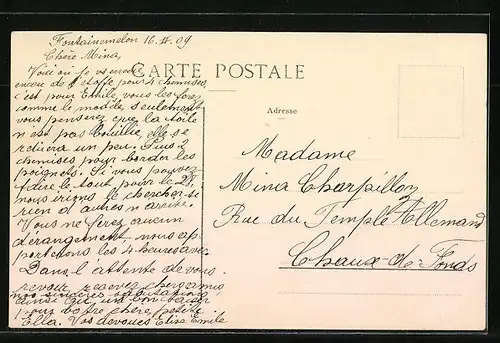 Fontainemelon 16.II.09
Chère Mina,
Voici où je vs envoie
encore de l'étoffe pour 4 chemises,
c'est pour Emile, vous les ferez
comme le modèle, seulement
vous penserez que la toile
n'est pas bouillie, elle se
réduira un peu. Puis 2
chemises pour border les
poignets. Si vous pouvez
faire le tout pour le 21,
nous irions le chercher si
rien d'autres n'arrête.
Vous ne ferez aucun
dérangement, nous ap-
portebons les 4 heures avec
Dans l'attente de vous
revoir, recevez chers amis
nos sincères salutations
ainsi qu'un bon baiser
pour votre chère petite
Ella. Vos dévoués Elise Emile
CARTE POSTALE
Adresse
Madame
Mina Charpilloz
Rue du Temple Allemand
Chaux-de-Fonds